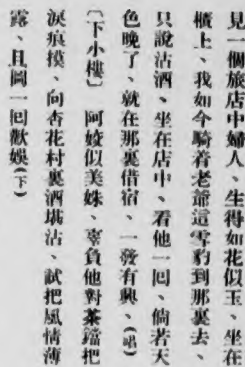 見一個旅店中婦人、生得如花似玉、坐在
櫃上、我如今騎着老爺這雪豹到那裏去、
只說沽酒、坐在店中、看他一回、倘若天
色晚了、就在那裏借宿、一發有興、(唱)
〔下小樓〕 阿姣似美姝、辜負他對茶鐺把
淚痕摸、向杏花村裏酒堪沽、試把風情薄
露、且圖一回歡娛(下)